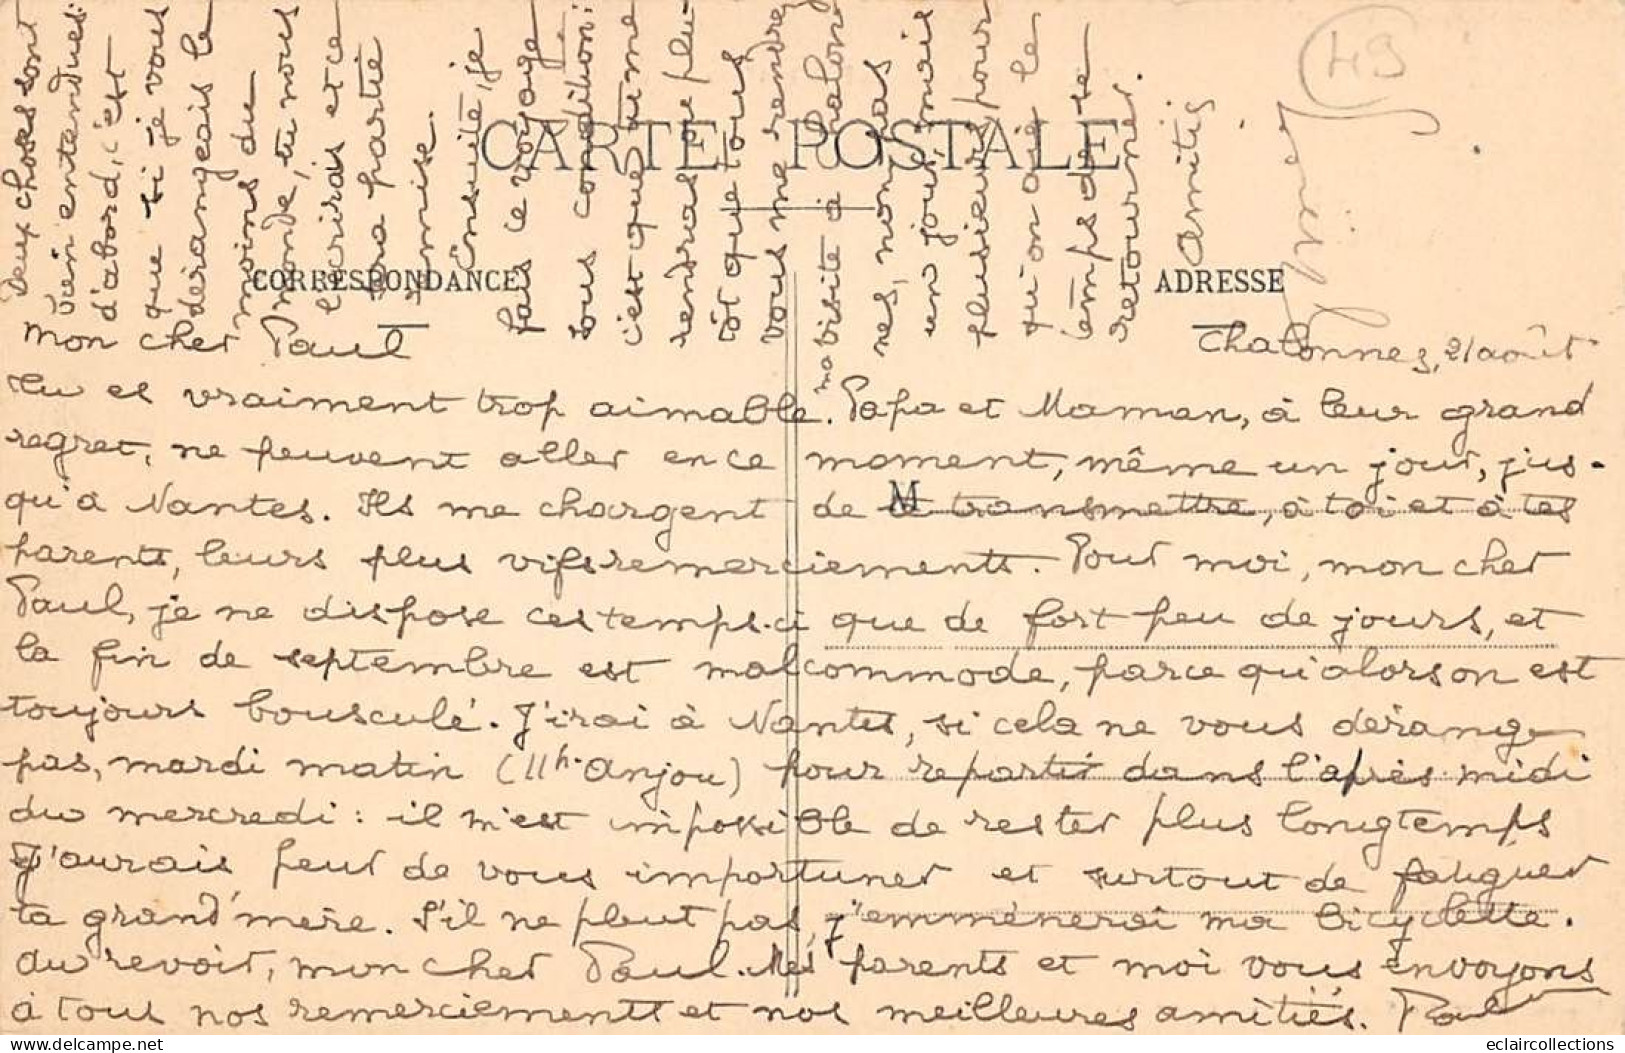 CARTE POSTALE
CORRESPONDANCE
ADRESSE
M
49
Chalonnes, 21 août
Mon cher Paul
Tu es vraiment trop aimable. Papa et Maman, à leur grand
regret, ne peuvent aller en ce moment, même un jour, jus-
qu'à Nantes. Ils me chargent de te transmettre, à toi et à tes
parents, leurs plus vifs remerciements. Pour moi, mon cher
Paul, je ne dispose ces temps-ci que de fort peu de jours, et
la fin de septembre est malcommode, parce qu'alors on est
toujours bousculé. J'irai à Nantes, si cela ne vous dérange
pas, mardi matin (11h. Anjou) pour repartir dans l'après midi
du mercredi : il m'est impossible de rester plus longtemps
J'aurais peur de vous importuner et surtout de fatiguer
ta grand'mère. S'il ne pleut pas, j'emmènerai ma bicyclette.
Au revoir, mon cher Paul. Mes parents et moi vous envoyons
à tout nos remerciements et nos meilleures amitiés. Paul
Deux choses sont
bien entendues:
d'abord, c'est
que si je vous
dérangeais le
moins du
monde, tu nous
l'écrirais et ce
sera partie
remise.
Ensuite, je
fais ce voyage
sous condition:
c'est que tu me
rendras ou plu-
tôt que tous
vous me rendrez
ma visite à Chalon-
nes, non pas
un jour, mais
plusieurs, pour
qu'on aie le
temps de se
retourner.
Amitiés
eclaircollections